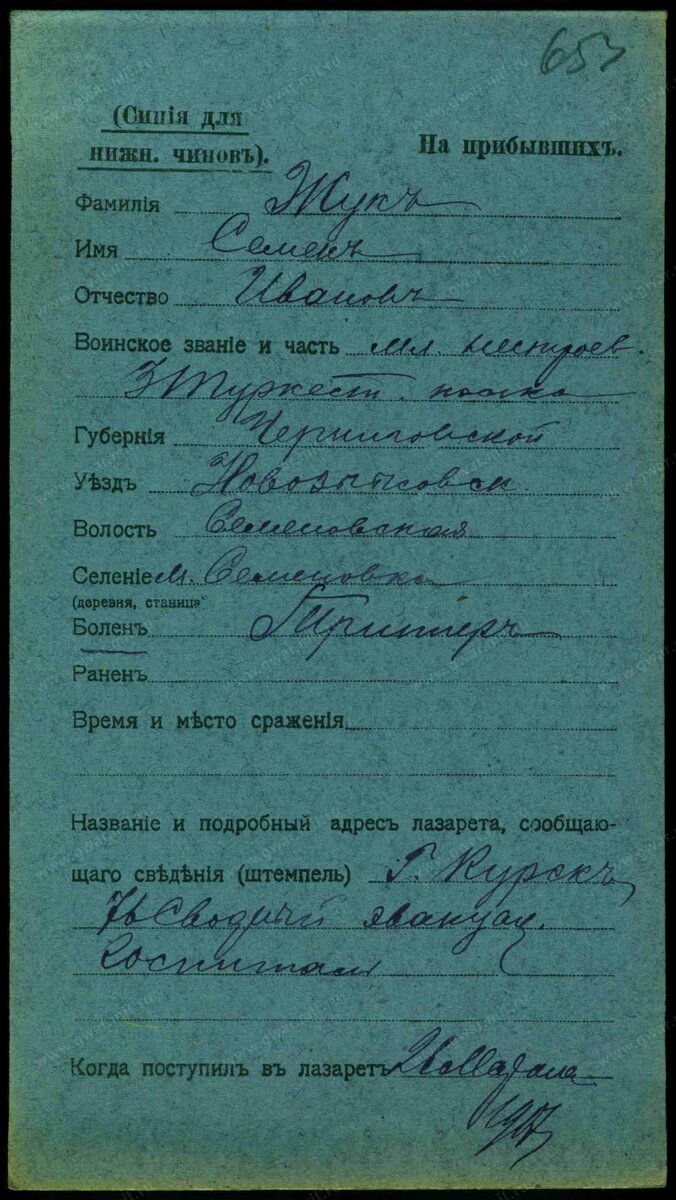 653
(Синія для
нижн. чиновъ).
На прибывшихъ.
Фамилія Жукъ
Имя Семенъ
Отчество Ивановъ
Воинское званіе и часть мл. нестроев.
3 Туркест. полка
Губернія Черниговской
Уѣздъ Новозыбковск
Волость Семеновская
Селеніе м. Семеновка
(деревня, станица)
Боленъ Трипперъ
Раненъ
Время и мѣсто сраженія
Названіе и подробный адресъ лазарета, сообщаю-
щаго свѣдѣнія (штемпель) Г. Курскъ
Сводный эвакуац.
госпиталь
Когда поступилъ въ лазаретъ Марта
1917